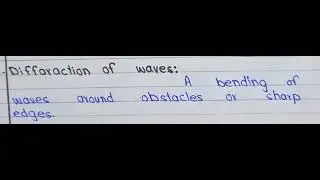 Diffaraction of waves:
A bending of
waves around obstacles or sharp
edges.